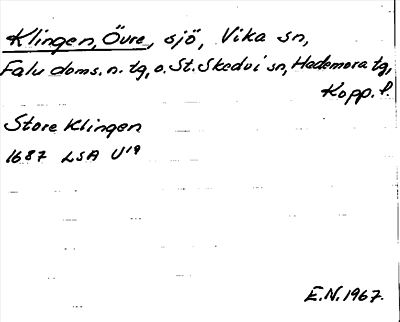 Klingen, Övre, sjö, Vika sn,
Falu doms. n. tg, o. St. Skedvi sn, Hedemora tg,
Kopp. l.
Store Klingen
1687 LSA U19
E.N. 1967.